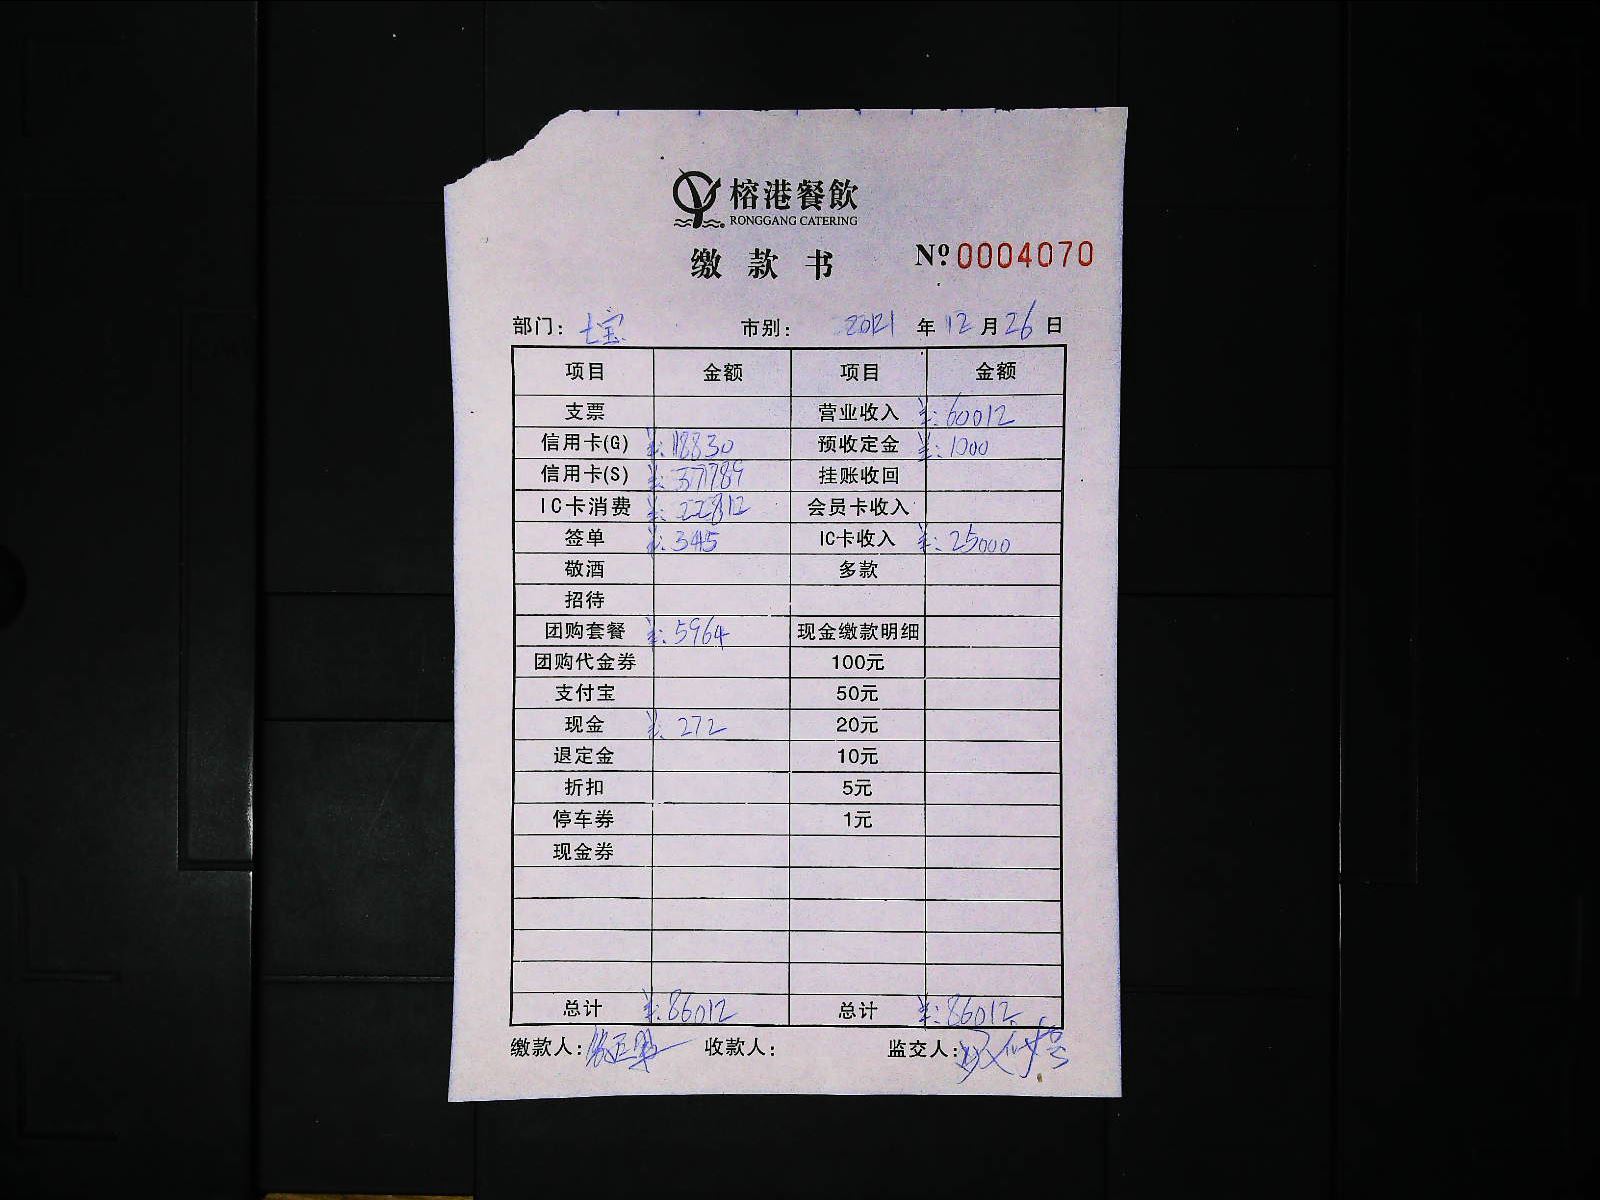 榕港餐飲
RONGGANG CATERING
缴款书 Nº 0004070
部门： 七宝 市别： 2021 年 12 月 26 日
项目 金额 项目 金额
支票 营业收入 ¥:60012
信用卡(G) ¥:18830 预收定金 ¥:1000
信用卡(S) ¥:37789 挂账收回
IC卡消费 ¥:22812 会员卡收入
签单 ¥:345 IC卡收入 ¥:25000
敬酒 多款
招待
团购套餐 ¥:5964 现金缴款明细
团购代金券 100元
支付宝 50元
现金 ¥:272 20元
退定金 10元
折扣 5元
停车券 1元
现金券
总计 ¥:86012 总计 ¥:86012
缴款人： 收款人： 监交人：